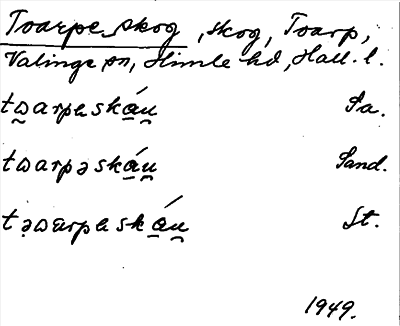 Toarpe skog, skog, Toarp,
Valinge sn, Himle hd, Hall. l.
tw̰arpɐská̱ṵ Sa.
tωarpəská̱ṵ Sand.
tə̣ωɑrpɐská̱ṵ St.
1949.